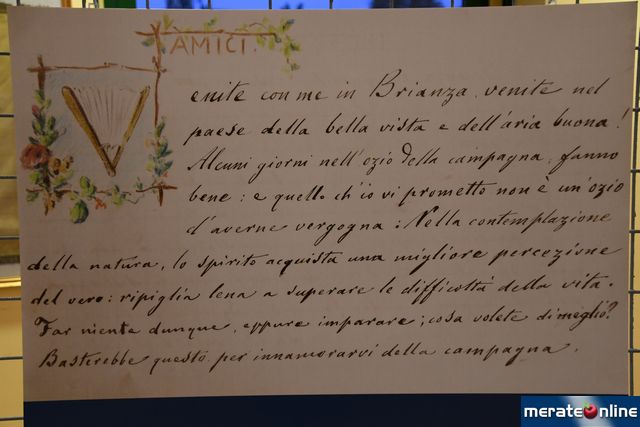 AMICI.
Venite con me in Brianza, venite nel
paese della bella vista e dell'aria buona!
Alcuni giorni nell'ozio della campagna, fanno
bene: e quello ch'io vi prometto non è un'ozio
d'averne vergogna: Nella contemplazione
della natura, lo spirito acquista una migliore percezione
del vero: ripiglia lena a superare le difficoltà della vita.
Far niente dunque, eppure imparare; cosa volete di meglio?
Basterebbe questo per innamorarvi della campagna.
merateonline